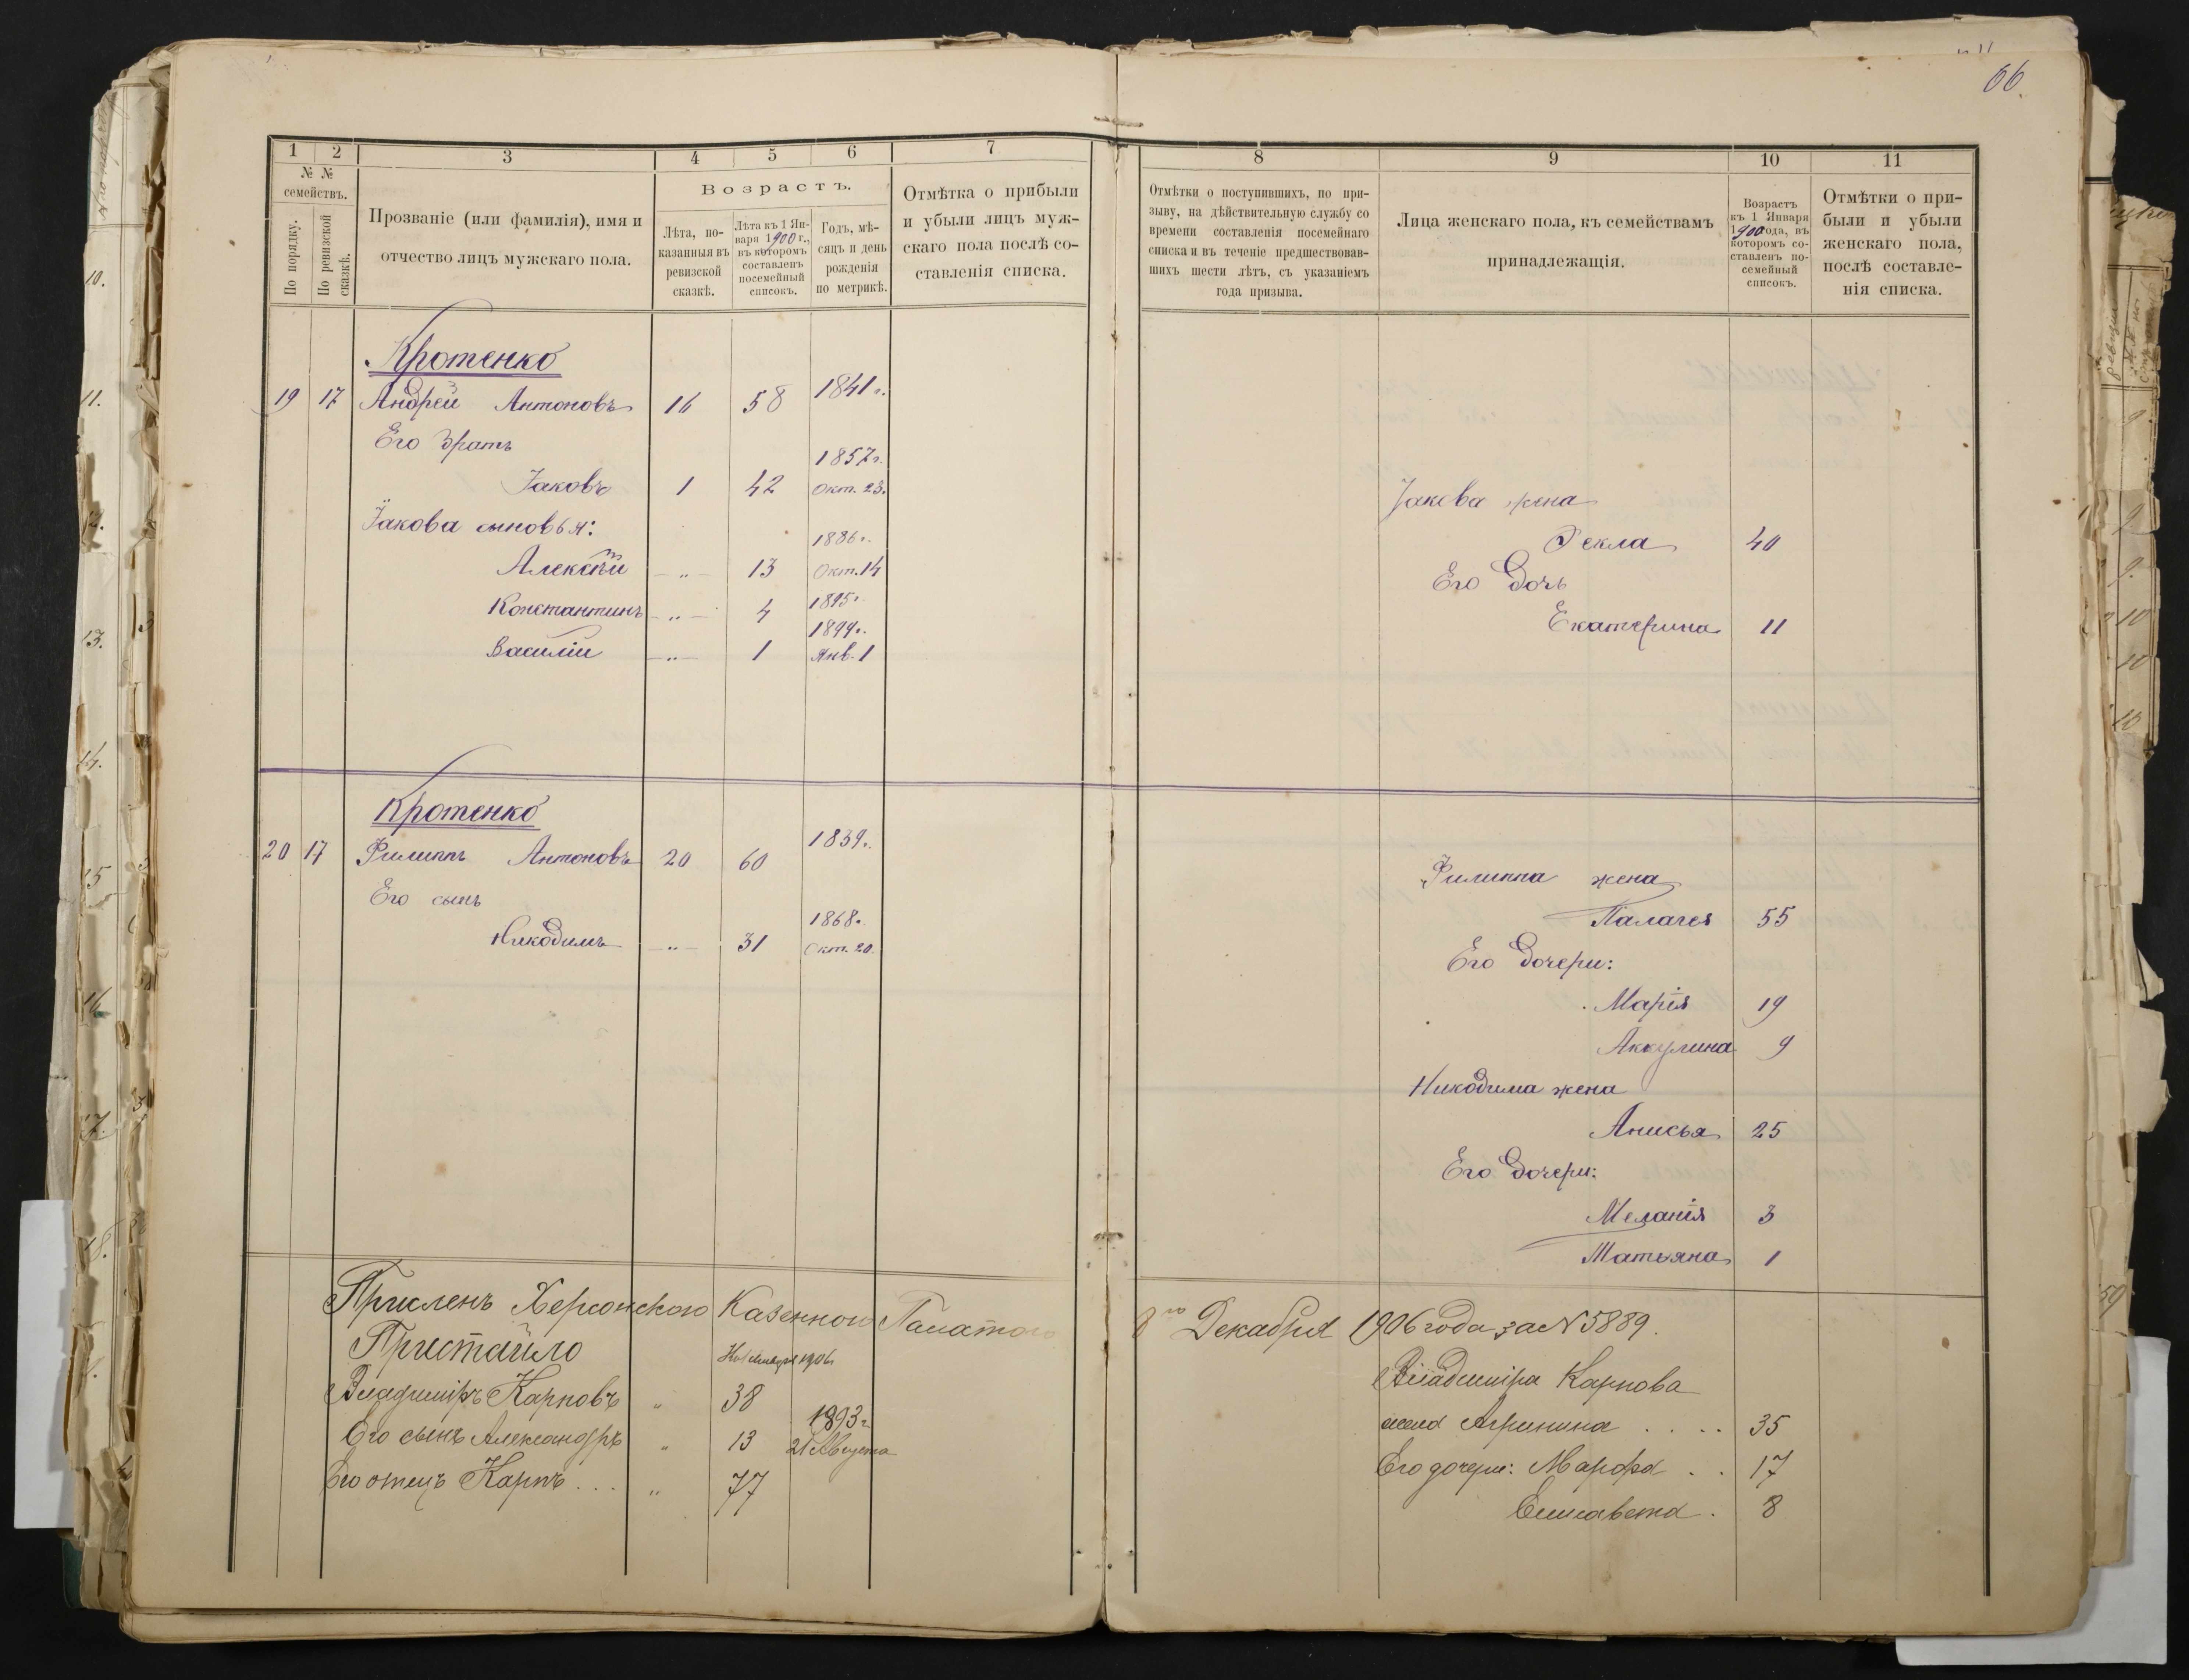 66.
1 2 3 4 5 6 7
№ №
семействъ.
По порядку.
По ревизской
сказкѣ.
Прозваніе (или фамилія), имя и
отчество лицъ мужскаго пола.
Возрастъ.
Лѣта, по-
казанныя въ
ревизской
сказкѣ.
Лѣта къ 1 Ян-
варя 1900 г.,
въ которомъ
составленъ
посемейный
списокъ.
Годъ, мѣ-
сяцъ и день
рожденія
по метрикѣ.
Отмѣтка о прибыли
и убыли лицъ муж-
скаго пола послѣ со-
ставленія списка.
Кротенко
19 17 Андрей Антоновъ 16 58 1841 г.
Его братъ
1857 г.
Іаковъ 1 42 Окт. 23.
Іакова сыновья:
1886 г.
Алексѣй " 13 Окт. 14
Константинъ " 4 1895 г.
1899 г.
Василій " 1 Янв. 1
Кротенко
20 17 Филиппъ Антоновъ 20 60 1839 г.
Его сынъ
1868 г.
Никодимъ " 31 Окт. 20.
Причленъ Херсонской Казенной Палатою
Пристайло
Владиміръ Карповъ " 38
1893 г
Его сынъ Александръ " 13 21 Августа
Его отецъ Карпъ . . . " 77
8 9 10 11
Отмѣтки о поступившихъ, по при-
зыву, на дѣйствительную службу со
времени составленія посемейнаго
списка и въ теченіе предшествовав-
шихъ шести лѣтъ, съ указаніемъ
года призыва.
Лица женскаго пола, къ семействамъ
принадлежащія.
Возрастъ
къ 1 Января
1900 года, въ
которомъ со-
ставленъ по-
семейный
списокъ.
Отмѣтки о при-
были и убыли
женскаго пола,
послѣ составле-
нія списка.
Іакова жена
Фекла 40
Его дочь
Екатерина 11
Филиппа жена
Палагея 55
Его дочери:
Марія 19
Аккулина 9
Никодима жена
Анисья 25
Его дочери:
Меланія 3
Татьяна 1
8го Декабря 1906 года за № 5889.
Владиміра Карпова
жена Агрипина . . . . 35
Его дочери: Марфа . . 17
Елисавета . 8